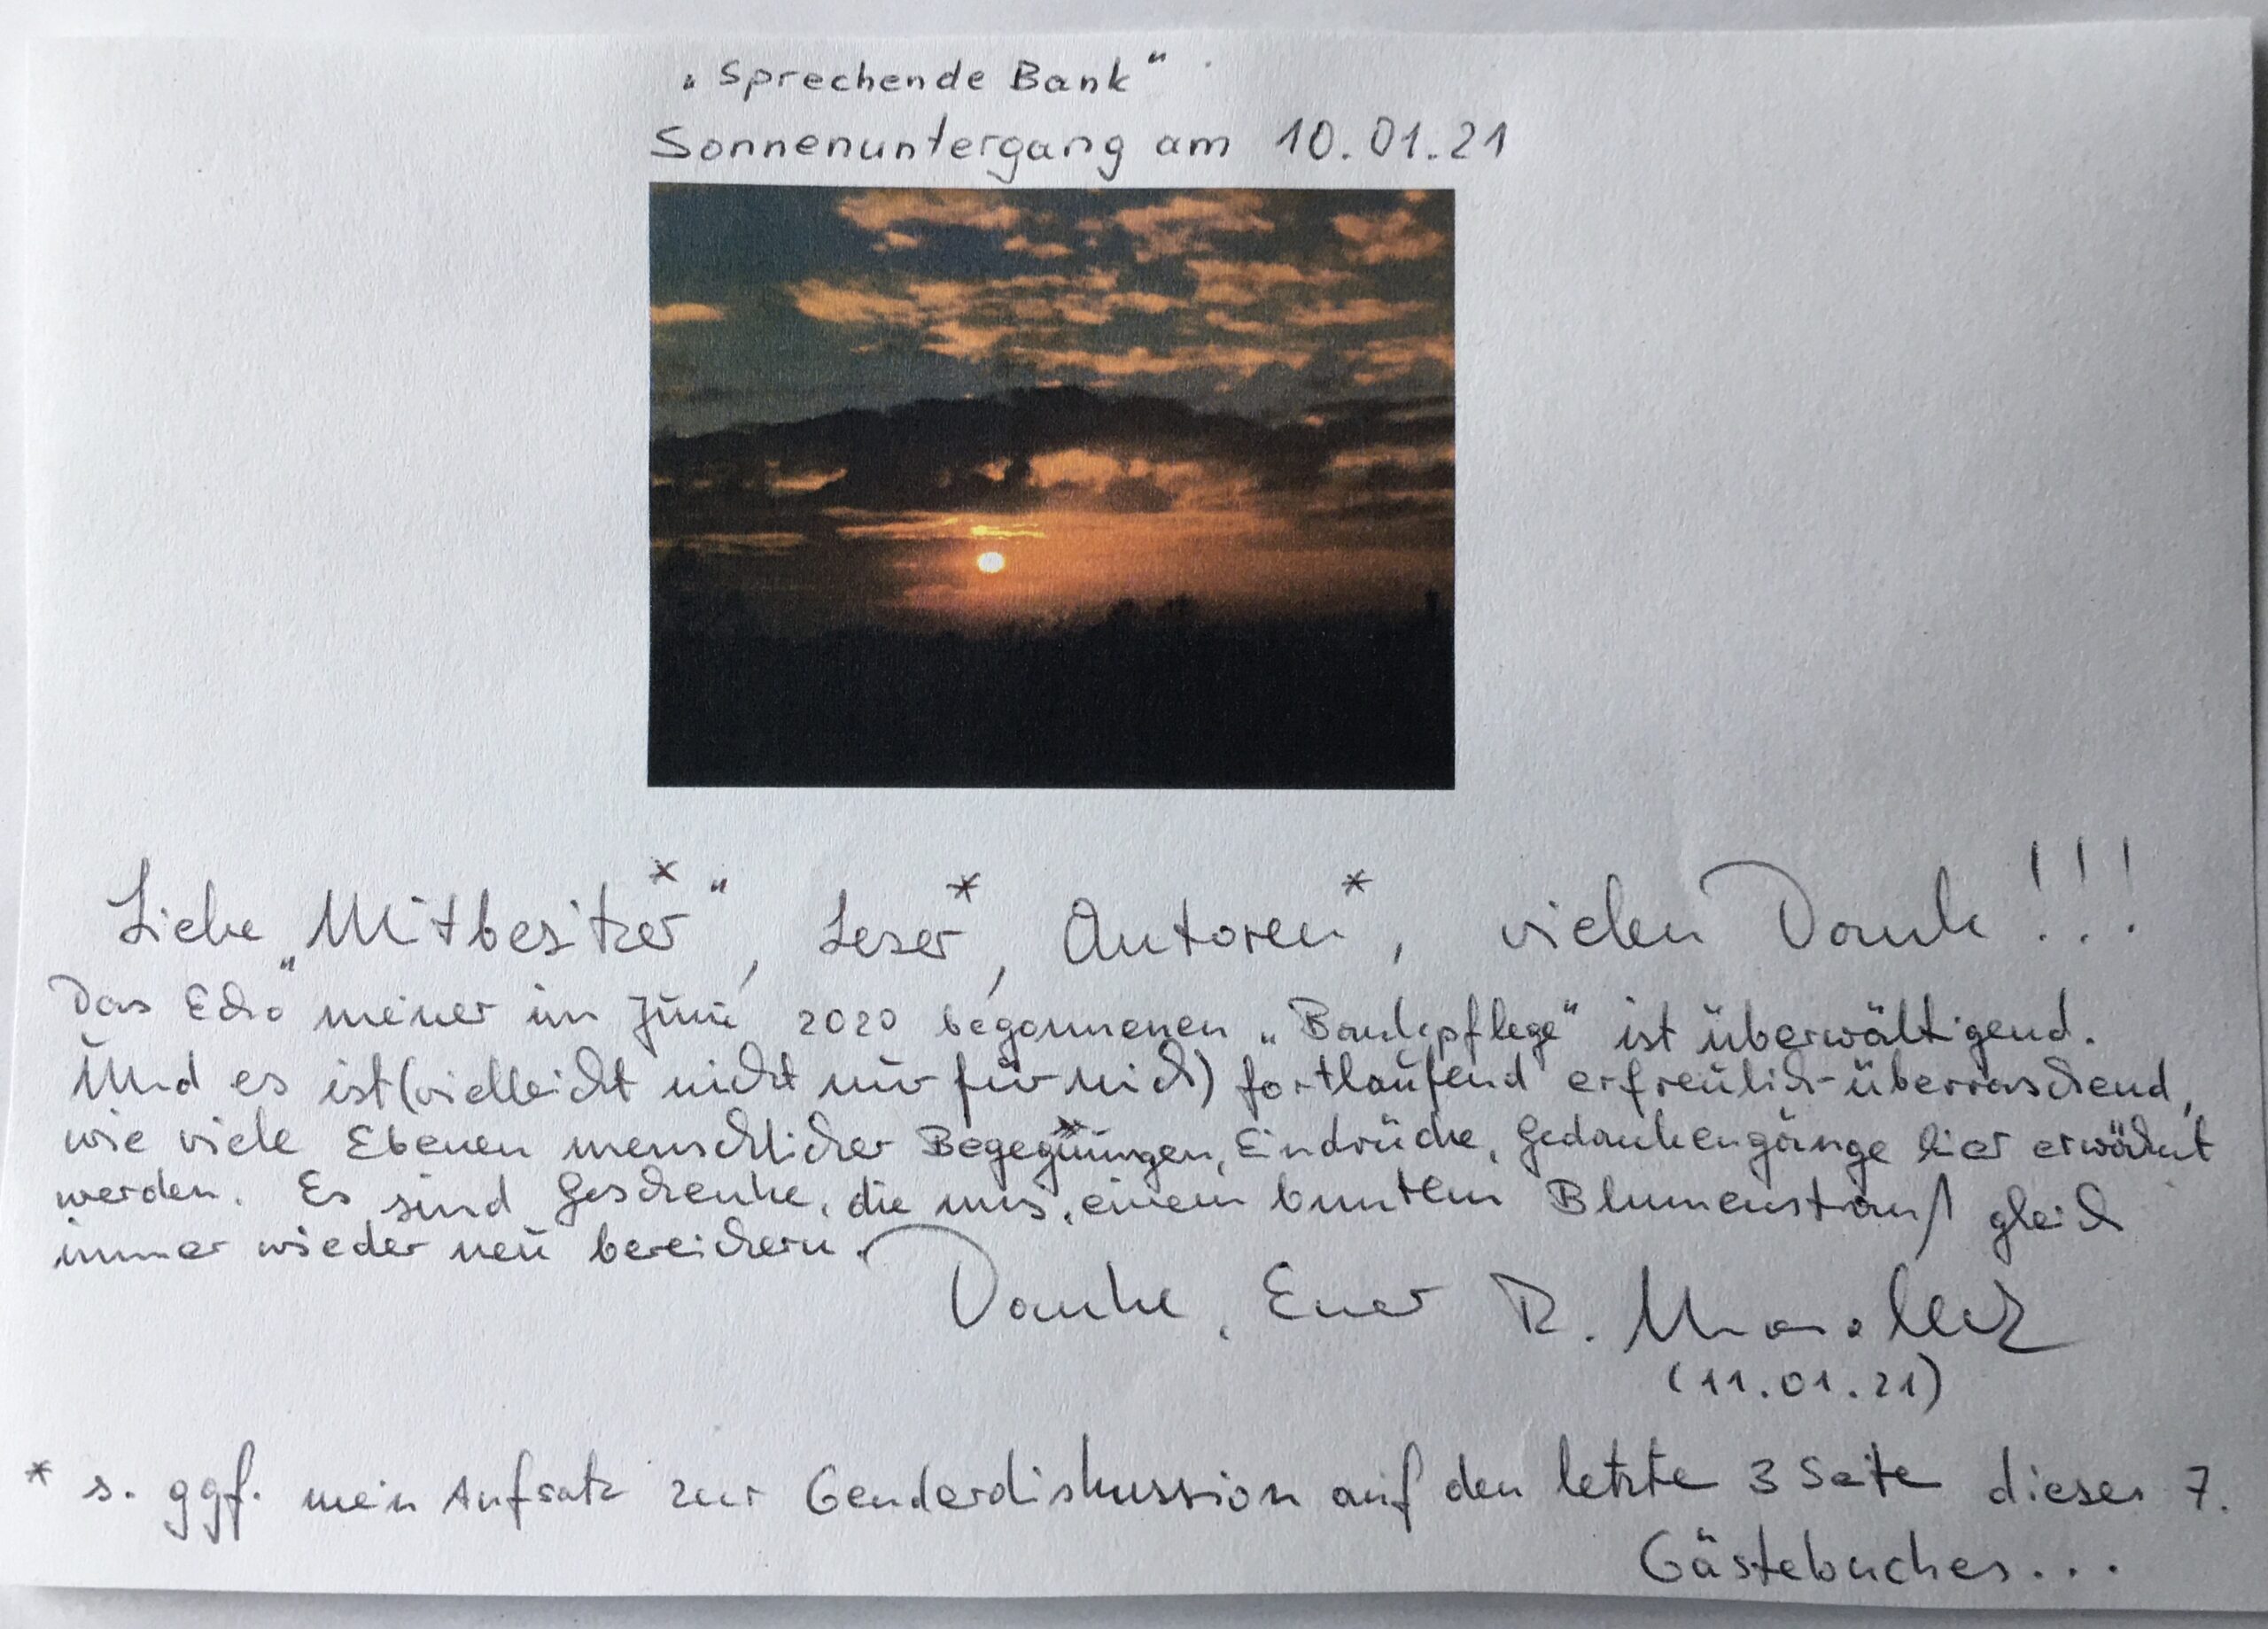 „Sprechende Bank“
Sonnenuntergang am 10.01.21
Liebe „Mitbesitzer*“, Leser*, Autoren*, vielen Dank!!!
Das Echo meiner im Juni 2020 begonnenen „Bankpflege“ ist überwältigend.
Und es ist (vielleicht nicht nur für mich) fortlaufend erfreulich-überraschend,
wie viele Ebenen menschlicher Begegnungen, Eindrücke, Gedankengänge hier erwähnt
werden. Es sind Geschenke, die uns, einem bunten Blumenstrauß gleich
immer wieder neu bereichern.
Danke, Euer R.
(11.01.21)
* s. ggf. mein Aufsatz zur Genderdiskussion auf den letzte 3 Seite dieses 7.
Gästebuches...